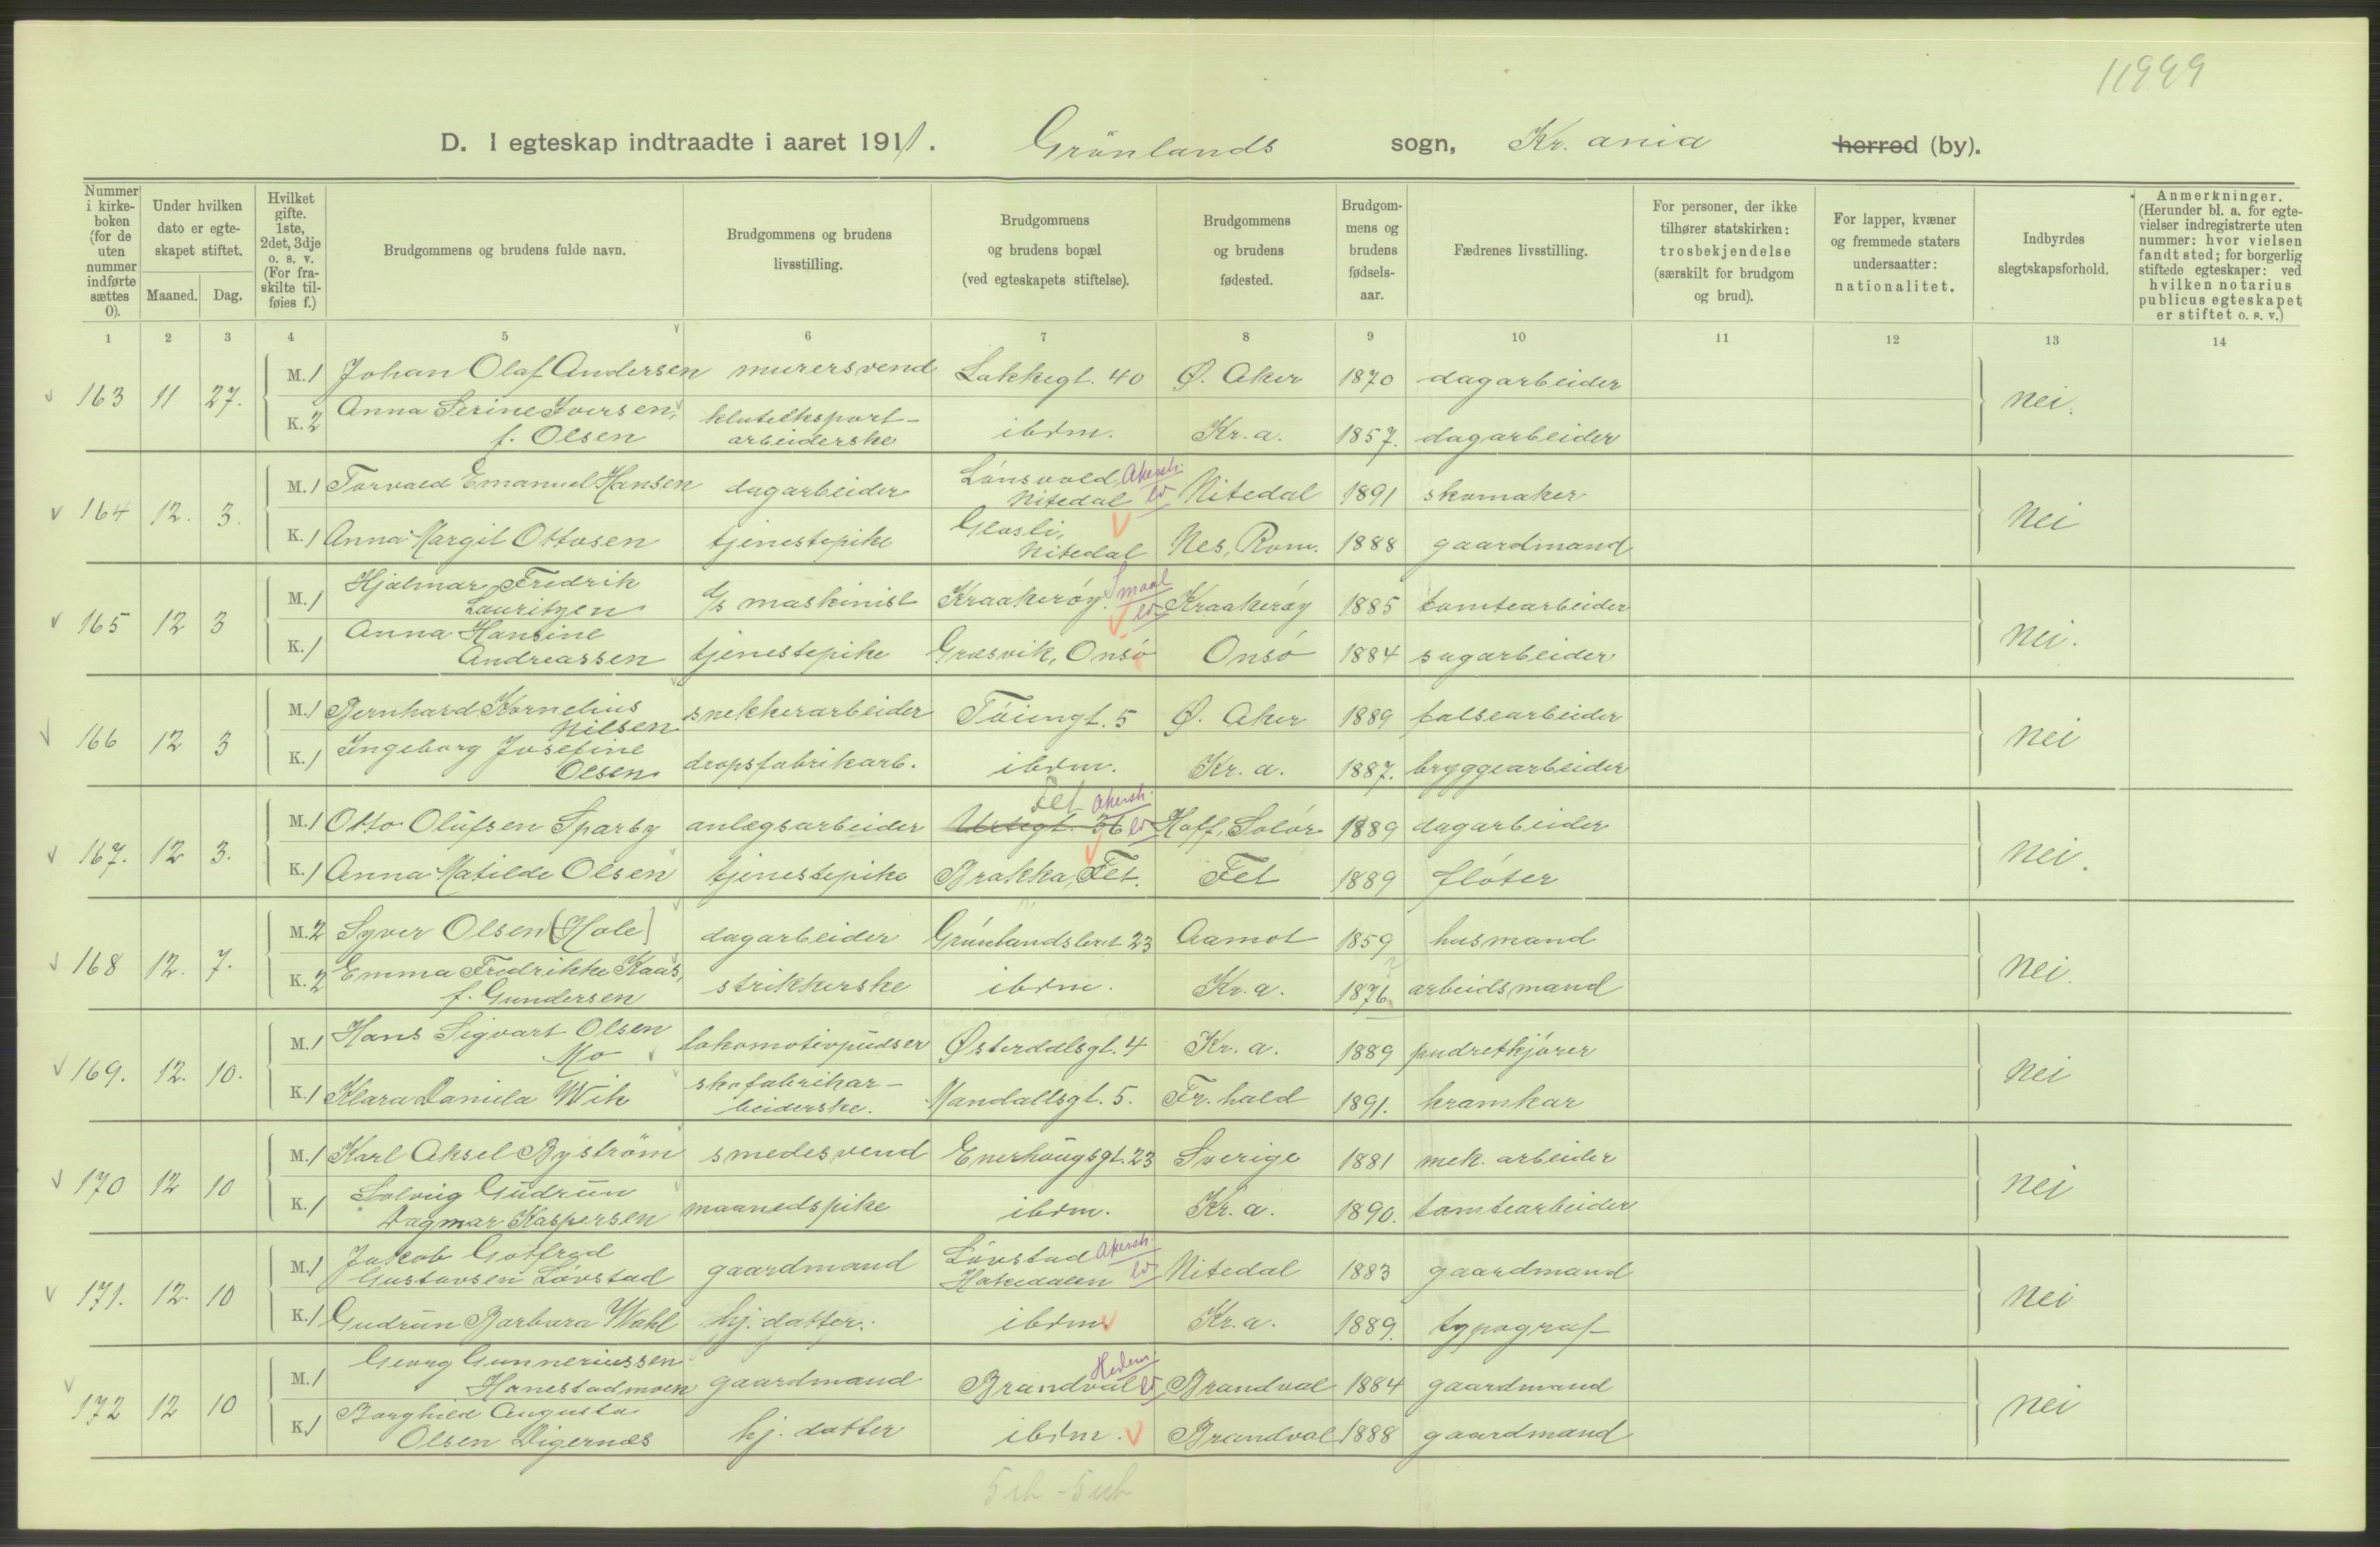 11999
D. I egteskap indtraadte i aaret 1911. Grönlands sogn, Kr. ania herred (by).
Nummer i kirkeboken (for de uten nummer indførte sættes 0).
Under hvilken dato er egteskapet stiftet.
Maaned. Dag.
Hvilket gifte. 1ste, 2det, 3dje o. s. v. (For fraskilte tilføies f.)
Brudgommens og brudens fulde navn.
Brudgommens og brudens livsstilling.
Brudgommens og brudens bopæl (ved egteskapets stiftelse).
Brudgommens og brudens fødested.
Brudgommens og brudens fødselsaar.
Fædrenes livsstilling.
For personer, der ikke tilhører statskirken: trosbekjendelse (særskilt for brudgom og brud).
For lapper, kvæner og fremmede staters undersaatter: nationalitet.
Indbyrdes slegtskapsforhold.
Anmerkninger. (Herunder bl. a. for egtevielser indregistrerte uten nummer: hvor vielsen fandt sted; for borgerlig stiftede egteskaper: ved hvilken notarius publicus egteskapet er stiftet o. s. v.)
1 2 3 4 5 6 7 8 9 10 11 12 13 14
163 11 27. M. 1 Johan Olaf Andersen murersvend Lakkegt. 40 Ø. Aker 1870 dagarbeider nei.
K. 2 Anna Serine Iversen, f. Olsen kluteksportarbeiderske ibdm. Kr. a. 1857. dagarbeider
164 12. 3. M. 1 Torvald Emanuel Hansen dagarbeider Lönsvold Nitedal Akersh. Nitedal 1891 skomaker nei
K. 1 Anna Margit Ottosen tjenestepike Glosli, Nitedal Nes, Rom. 1888 gaardmand
165 12 3 M. 1 Hjalmar Fredrik Lauritzen maskinist Kraakeröy. Smaal Kraakeröy 1885 tomtearbeider nei.
K. 1 Anna Hansine Andreassen tjenestepike Græsvik, Onsö Onsö 1884 sagarbeider
166 12 3 M. 1 Bernhard Kornelius Nilsen snekkerarbeider Töiengt. 5 Ø. Aker 1889 falsearbeider nei
K. 1 Ingeborg Josefine Olsen dropsfabrikarb. ibdm. Kr. a. 1887. bryggearbeider
167. 12 3. M. 1 Otto Olüfsen Sparby anlægsarbeider Urtegt. 36 Fet Akersh. Hoff, Solör 1889 dagarbeider nei.
K. 1 Anna Matilde Olsen tjenestepike Brakka, Fet. Fet 1889 flöter
168 12. 7. M. 2 Syver Olsen (Hole) dagarbeider Grönlandsleret 23 Aamot 1859 husmand nei.
K. 2 Emma Fredrikke Kaas, f. Gundersen strikkerske ibdm. Kr. a. 1876 arbeidsmand
169. 12. 10. M. 1 Hans Sigvart Olsen Mo lokomotivpüdser Østerdalsgt. 4 Kr. a. 1889 pudretkjörer nei
K. 1 Klara Daniela Wik skofabrikarbeiderske. Mandallsgt. 5. Fr. hald 1891. kramkar
170 12 10 M. 1 Karl Aksel Byström smedesvend Enerhaügsgt. 23 Sverige 1881 mek. arbeider nei
K. 1 Solveig Güdrün Dagmar Kaspersen maanedspike ibdm. Kr. a. 1890. tomtearbeider
171. 12. 10 M. 1 Jakob Gotfred Gustavsen Lövstad gaardmand Lövstad Hakedalen Akersh. Nitedal 1883 gaardmand nei
K. 1 Gudrün Barbara Wahl hj. datter. ibdm. Kr. a. 1889. typograf
172 12 10 M. 1 Georg Gunneriussen Hanestadmoen gaardmand Brandval Hedem. Brandval 1884 gaardmand nei
K. 1 Borghild Augusta Olsen Digernæs hj. datter ibdm. Brandval 1888 gaardmand